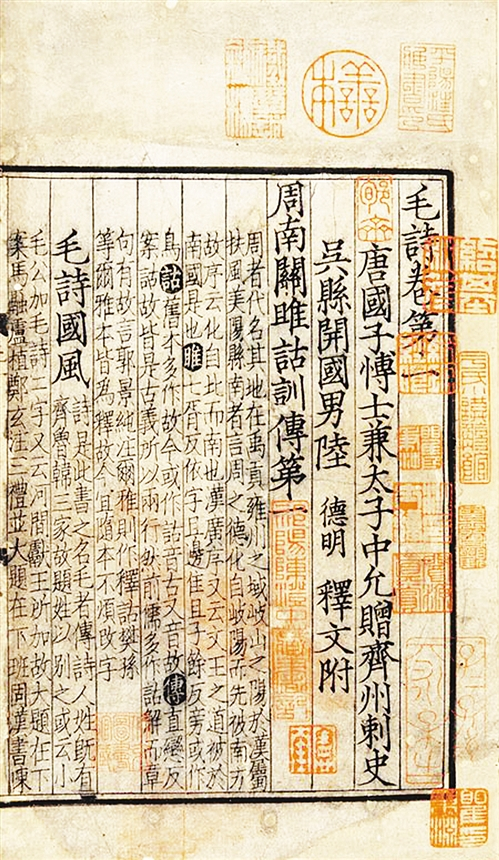 善本
毛詩卷第一
唐國子博士兼太子中允贈齊州刺史
吳縣開國男陸 德明 釋文附
周南關雎詁訓傳第一
周者代名其地在禹貢雍州之域岐山之陽於漢屬
扶風美陽縣南者言周之德化自岐陽而先被南方
故序云化自北而南也漢廣序又云文王之道被於
南國是也 雎 七胥反依字且邊隹且音子餘反旁或作
鳥 詁 舊本多作故今或作詁音古又音故 傳 直戀反
案詁故皆是古義所以兩行然前儒多作詁解而章
句有故言郭景純注爾雅則作釋詁樊孫
等爾雅本皆為釋故今宜隨本不煩改字
毛詩國風
詩是此書之名毛者傳詩人姓既有
齊魯韓三家故題姓以別之或云小
毛公加毛詩二字又云河間獻王所加故大題在下
案馬融盧植鄭玄注三禮並大題在下班固漢書陳